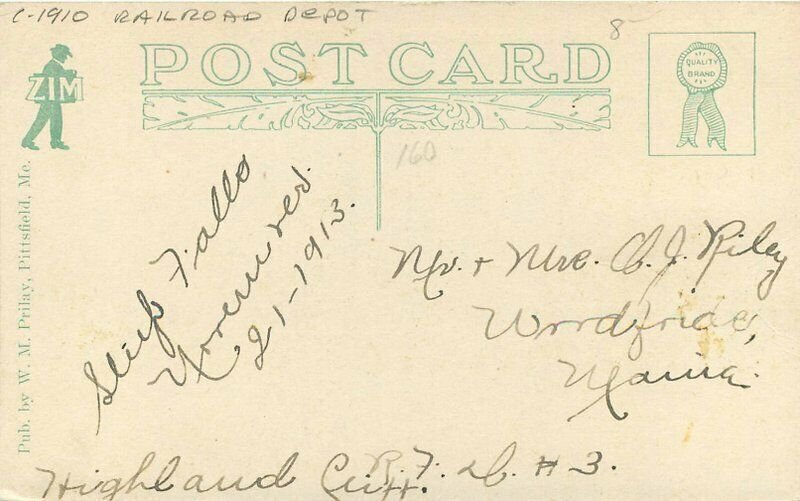 C-1910 RAILROAD DEPOT
8
POST CARD
QUALITY
BRAND
ZIM
160
Pub. by W. M. Prilay, Pittsfield, Me.
Falls
21-1913.
Mr. + Mrs. C. J. Riley
Woodfords,
Maine.
R. F. D. #3.
Highland Cliff.